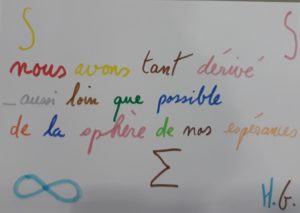 ∫ ∫
nous avons tant dérivé
_ aussi loin que possible
de la sphère de nos espérances
∞ Σ H.G.